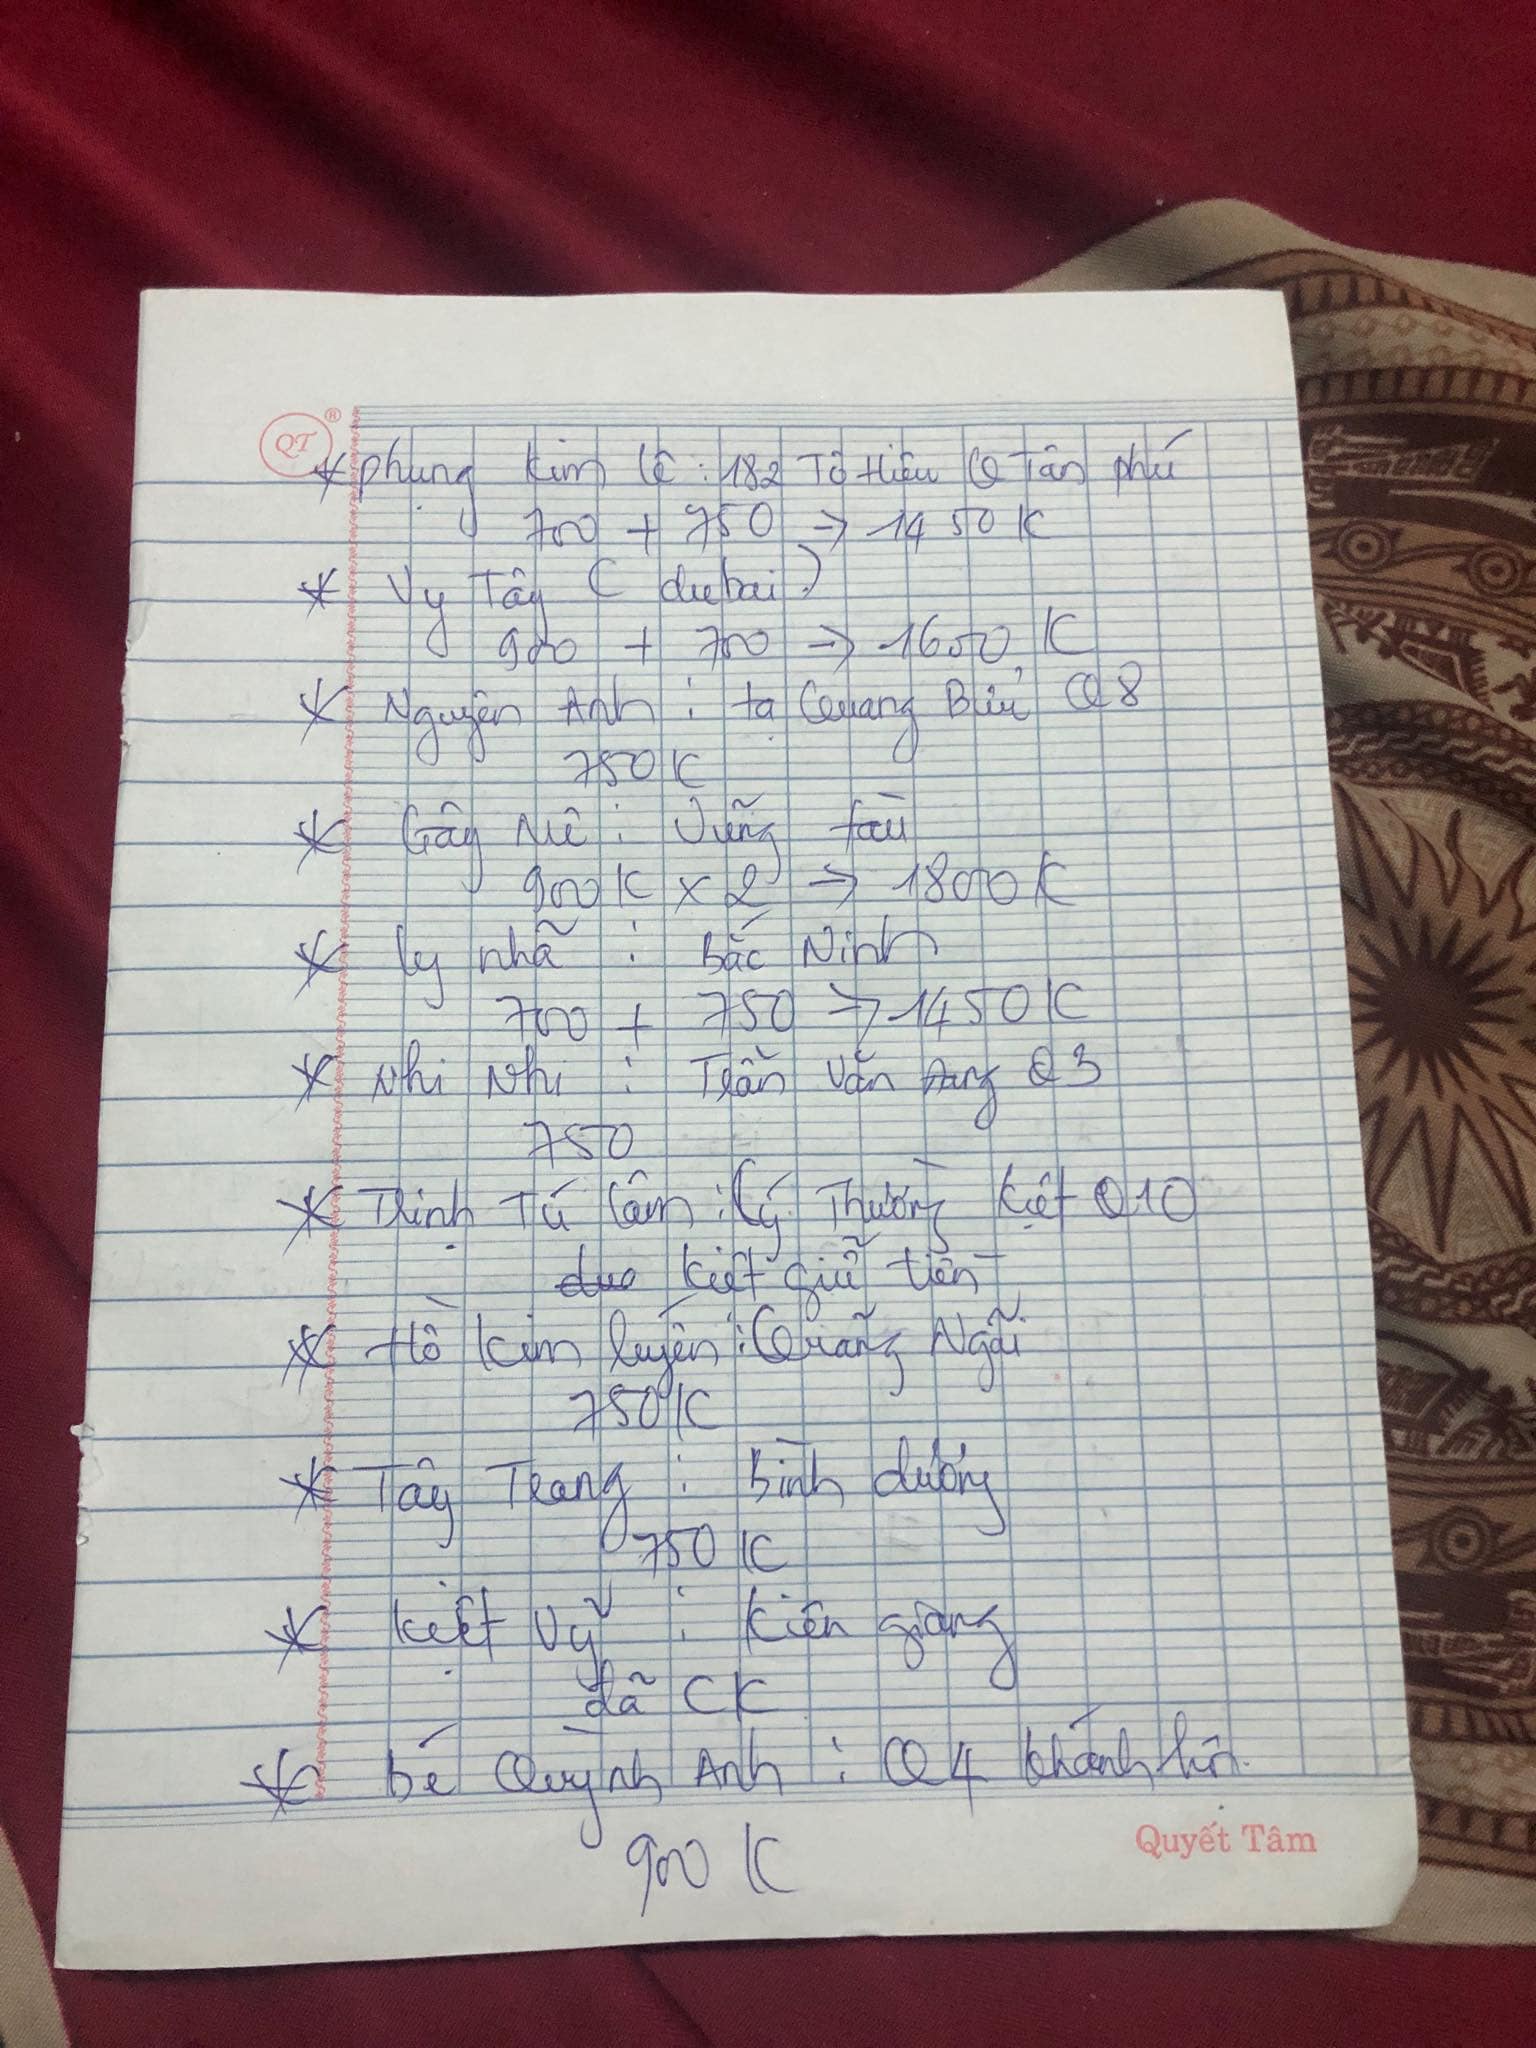 QT ®
* Phụng Kim Lê : 182 Tô Hiệu Q Tân Phú
700 + 750 → 1450K
* Vy Tây ( dubai )
900 + 700 → 1600 K
* Nguyên Anh : tạ Quang Bửu Q8
750K
* Gây Mê : Vũng tàu
900K x 2 → 1800K
* ly nhã : Bắc Ninh
700 + 750 → 1450K
* Nhi Nhi : Trần Văn Q3
750
* Trịnh Tú Lâm : Lý Thường Kiệt Q10
Kiệt giữ tiền
* Hồ Kim luyến : Quãng Ngãi
750K
* Tây Trang : Bình dương
750 K
* Kiệt Vỹ : Kiên giang
đã CK
* bé Quỳnh Anh : Q4 khánh hội.
900 K
Quyết Tâm